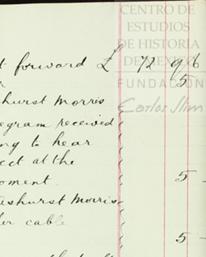 CENTRO DE
ESTUDIOS
DE HISTORIA
DE MÉXICO
FUNDACIÓN
Carlos Slim
t forward £ 72 9 6
5
hurst Morris
egram received
ng to hear
ect at the
oment. 5 -
ashurst Morris
er cable
5 -